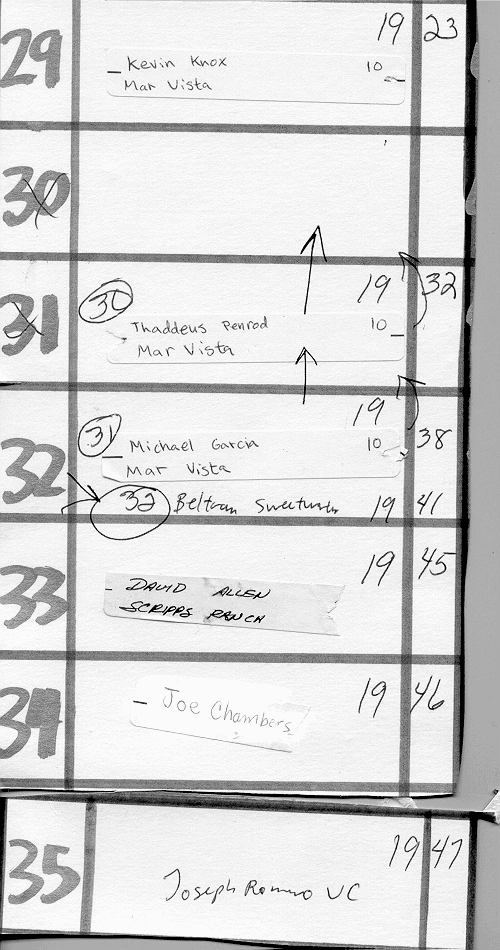 29 19 23
Kevin Knox 10
Mar Vista
30
31 30 19 32
Thaddeus Penrod 10
Mar Vista
19 38
32 31 Michael Garcia 10
Mar Vista
32 Beltran Sweetwater 19 41
33 19 45
DAVID ALLEN
SCRIPPS RANCH
34 19 46
Joe Chambers
35 19 47
Joseph Romero UC